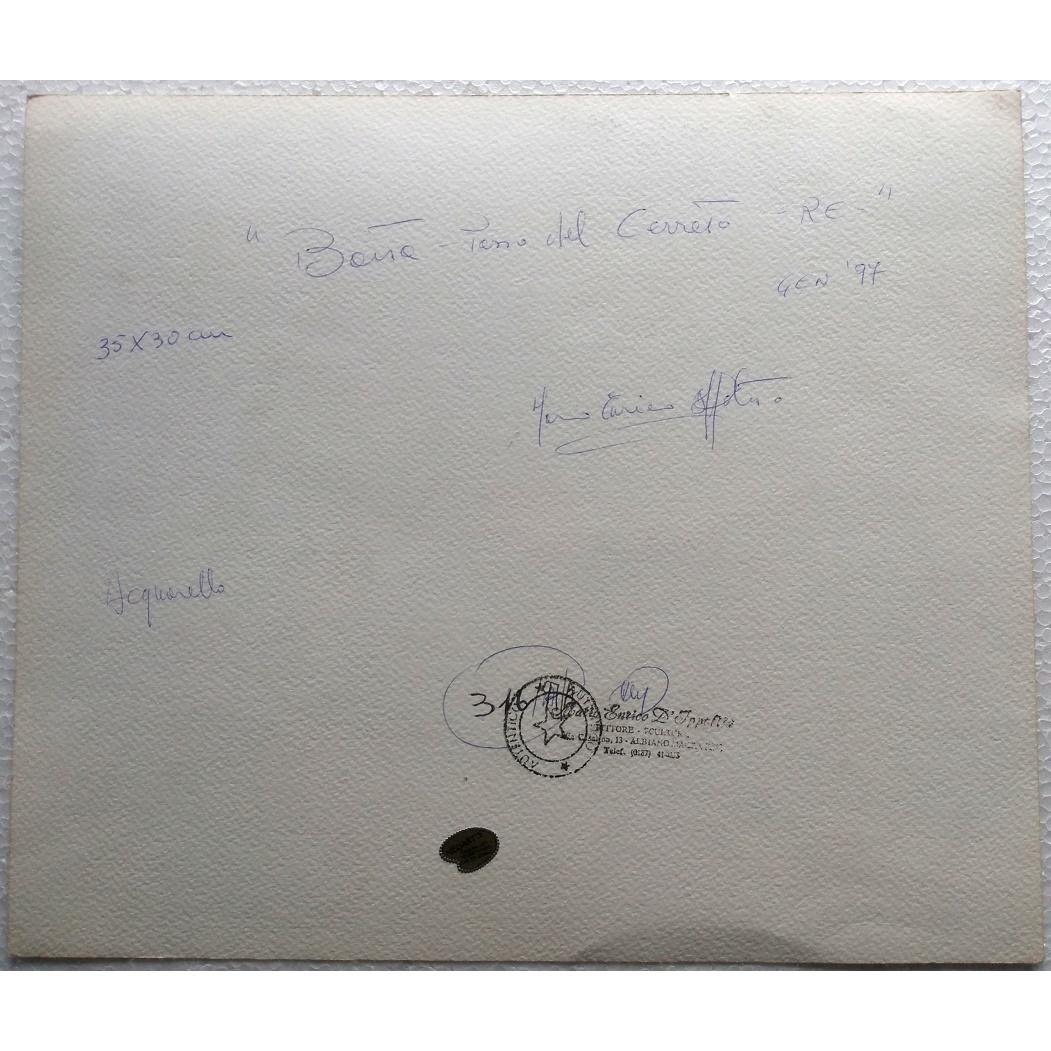 " Baita - Passo del Cerreto - RE - "
GEN '97
35X30 cm
Mario Enrico
Acquarello
316
AUTENTICO
Mario Enrico D'Ippolito
PITTORE - SCULTORE
13 - ALBIANO MAGRA
Telef. (0187)